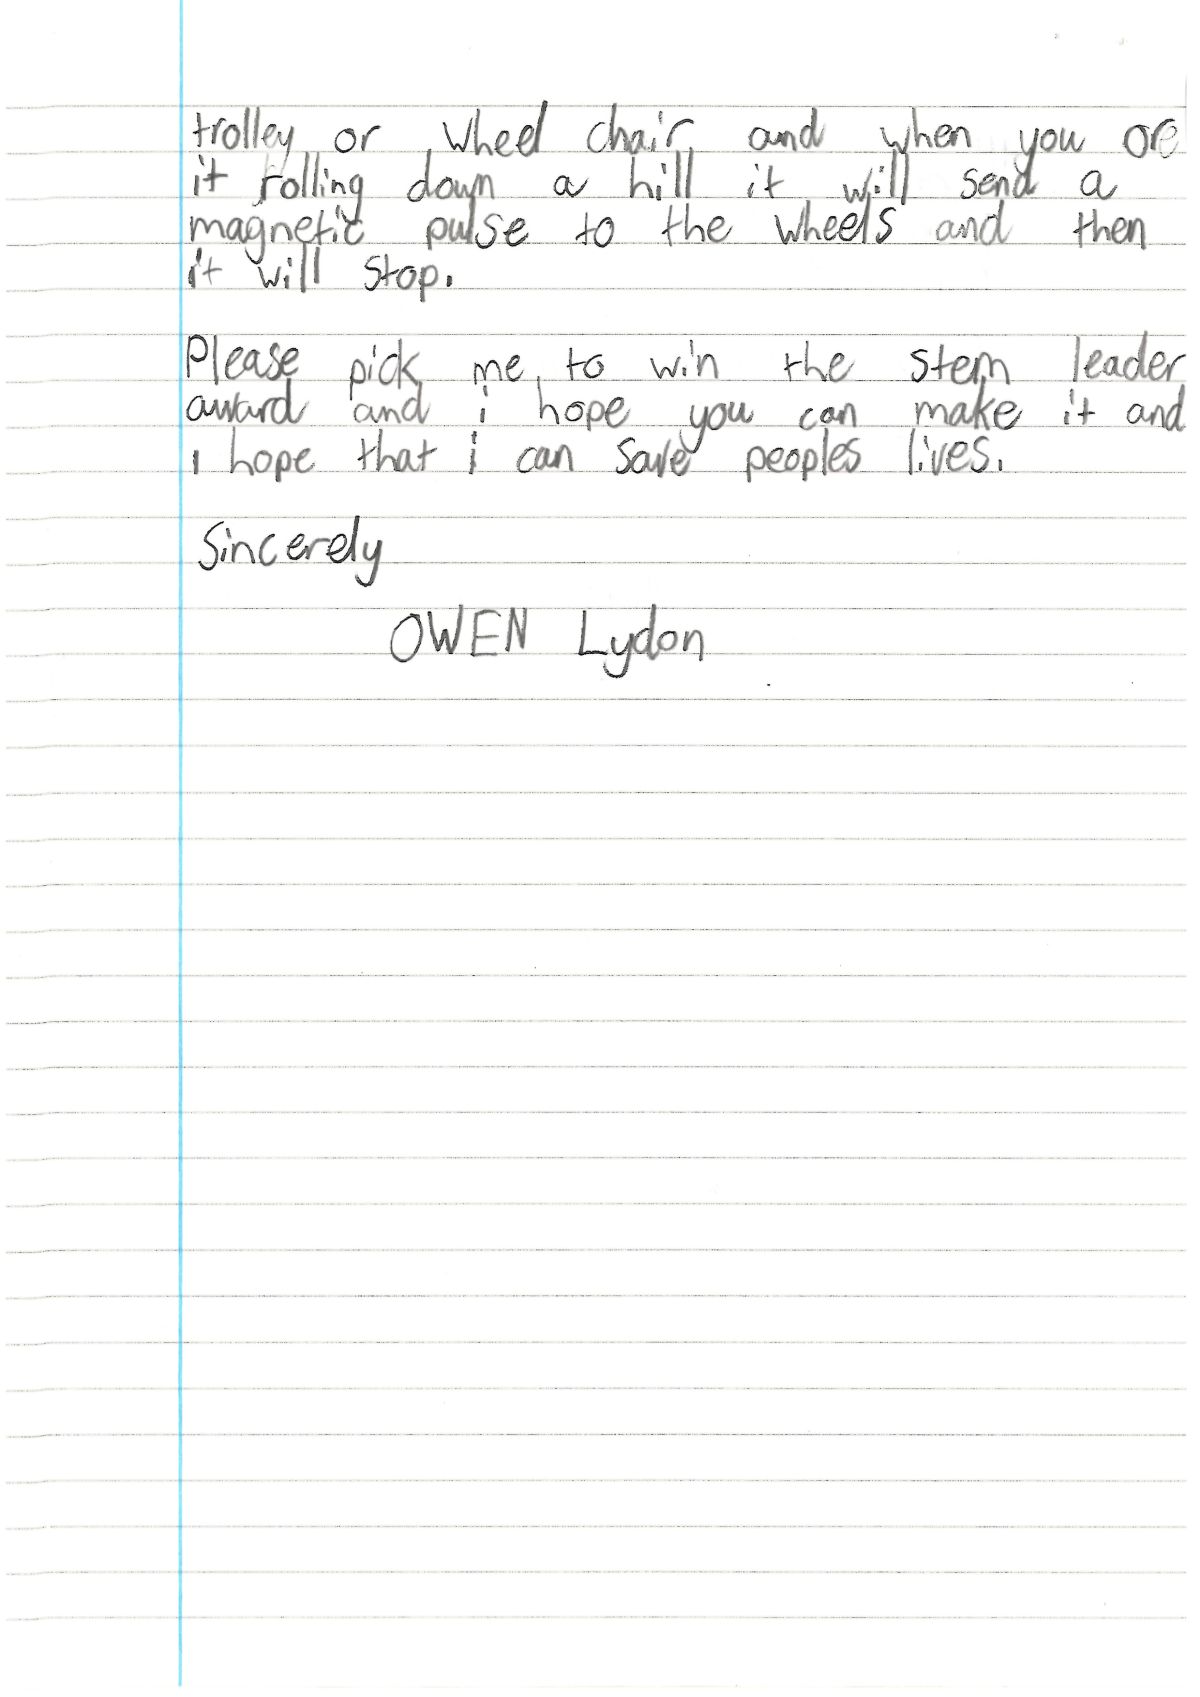 trolley or wheel chair and when you or
it rolling down a hill it will send a
magnetic pulse to the wheels and then
it will stop.
Please pick me to win the stem leader
award and i hope you can make it and
i hope that i can save peoples lives.
Sincerely
OWEN Lydon